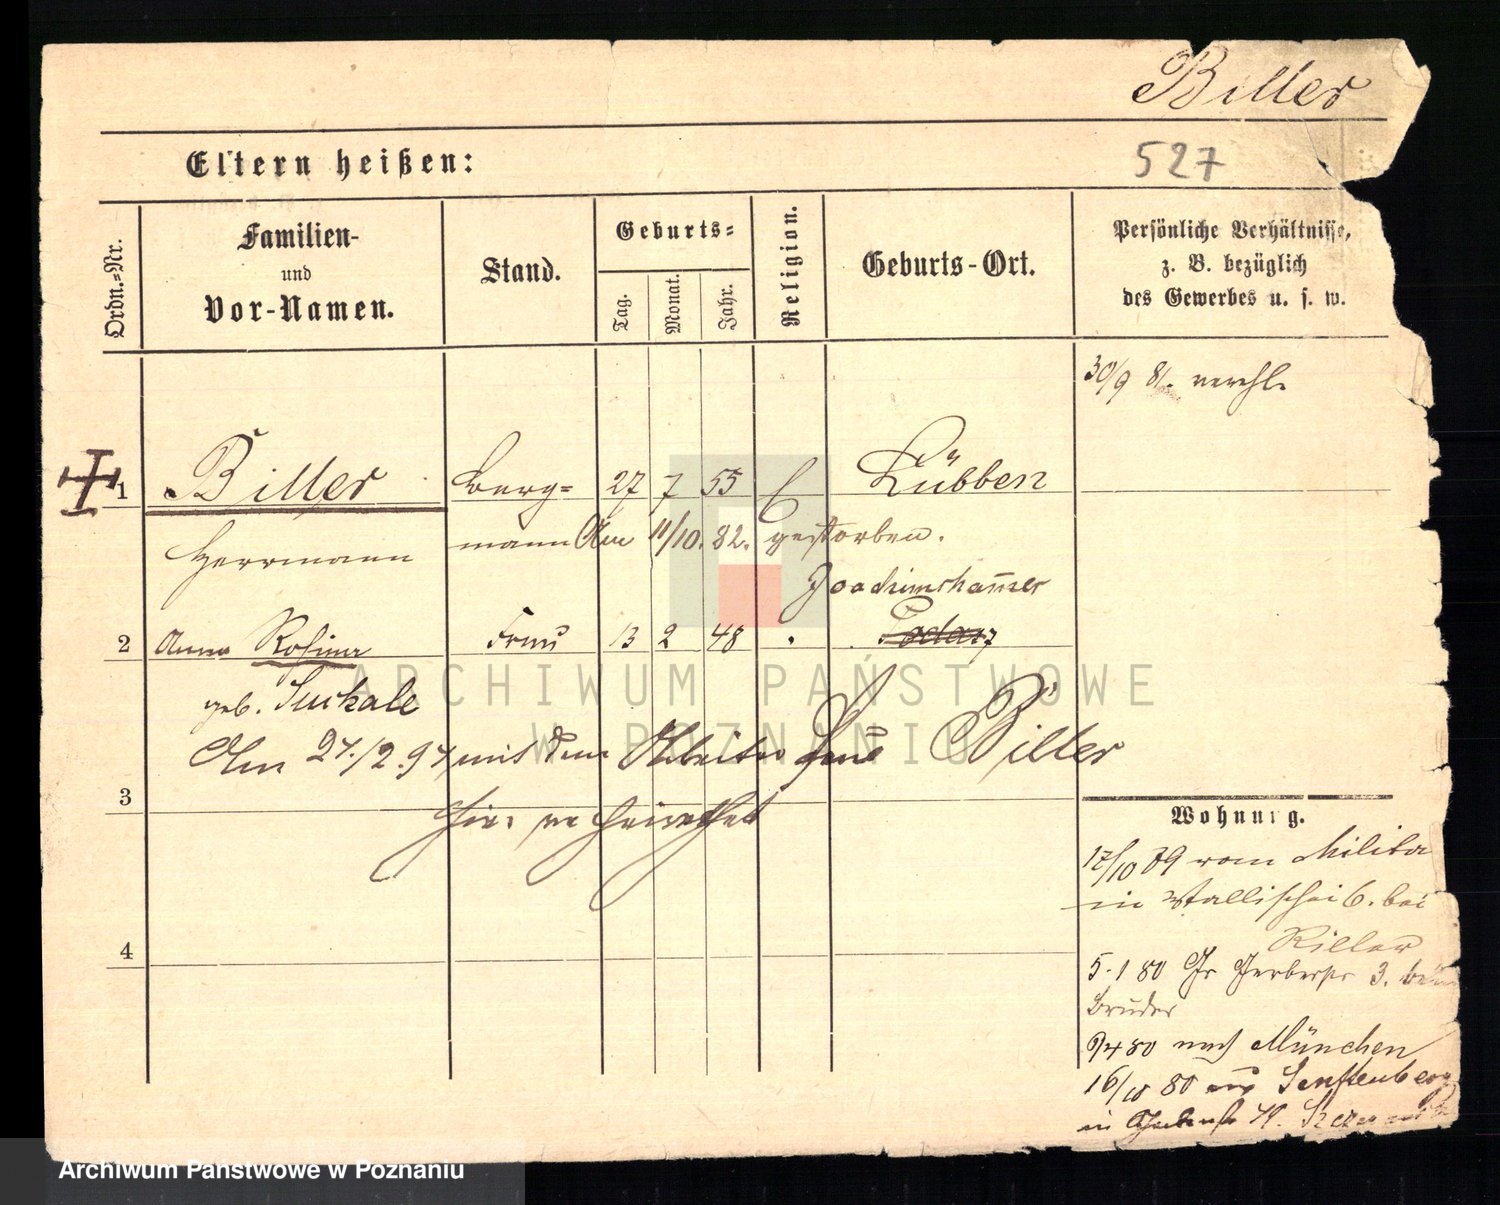 Biller
Eltern heißen:
527
Ordn.-Nr.
Familien-
und
Vor-Namen.
Stand.
Geburts-
Tag.
Monat.
Jahr.
Religion.
Geburts-Ort.
Persönliche Verhältnisse,
z. B. bezüglich
des Gewerbes u. s. w.
30/9 81. verehl.
1 Biller Berg- 27 7 55 Lübben
Herrmann mann Am 11/10. 82. gestorben.
Joachimshammer
2 Anna Rosina Frau 13 2 48
geb. Suckale
Am 27./2. 97 mit dem Arbeiter Biller
3 hier verheirathet
4
Wohnung.
17/10 79 vom Militär
in Wallischei 6. bei
Biller
5.1 80 Gr Gerberstr 3. beim
Bruder
80 nach München
16/10 80 aus Senftenberg
in
ARCHIWUM PAŃSTWOWE
W POZNANIU
Archiwum Państwowe w Poznaniu